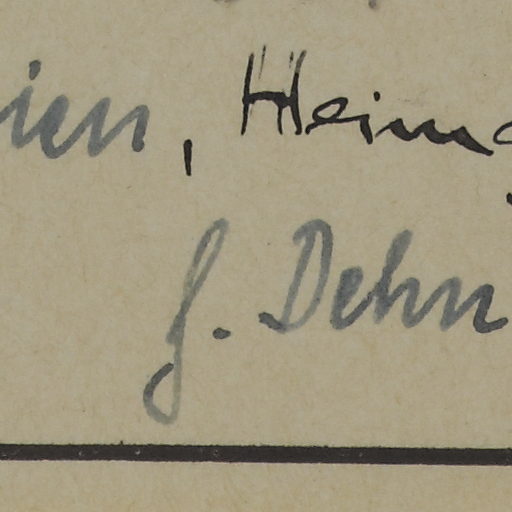 ien, Heim
J. Dehn